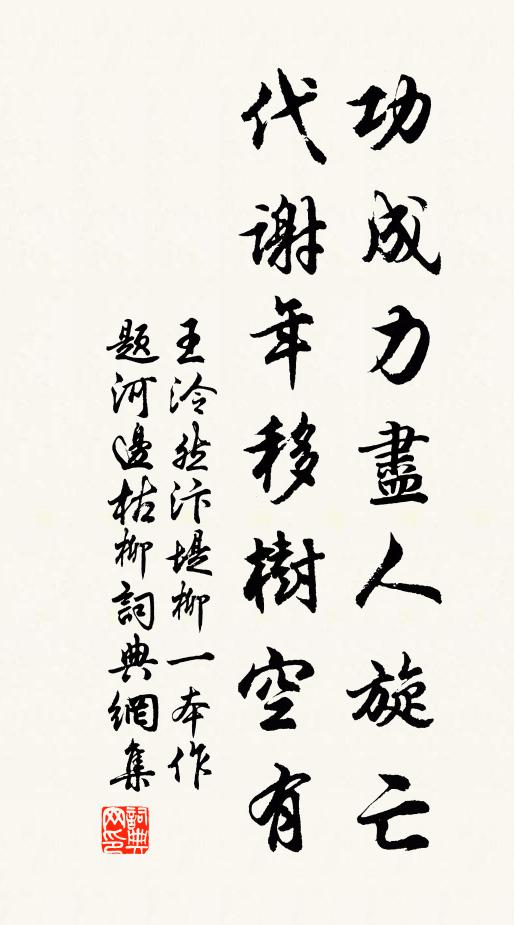 功成力盡人旋亡
代謝年移樹空有
王泠然汴堤柳一本作
題河邊枯柳詞典網集
詞典
网印